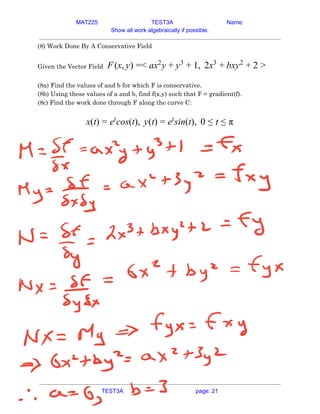 MAT225 TEST3A Name:
Show all work algebraically if possible.
(8) Work Done By A Conservative Field
Given the Vector Field F(x, y) =< ax²y + y³ + 1, 2x³ + bxy² + 2 >
(8a) Find the values of a and b for which F is conservative.
(8b) Using these values of a and b, find f(x,y) such that F = gradient(f).
(8c) Find the work done through F along the curve C:
x(t) = eᵗcos(t), y(t) = eᵗsin(t), 0 ≤ t ≤ π
M = δf/δx = ax²y + y³ + 1 = fx
My = δf/δxδy = ax² + 3y² = fxy
N = δf/δy = 2x³ + bxy² + 2 = fy
Nx = δf/δyδx = 6x² + by² = fyx
Nx = My ⇒ fyx = fxy
⇒ 6x² + by² = ax² + 3y²
∴ a = 6, b = 3
TEST3A page: 21